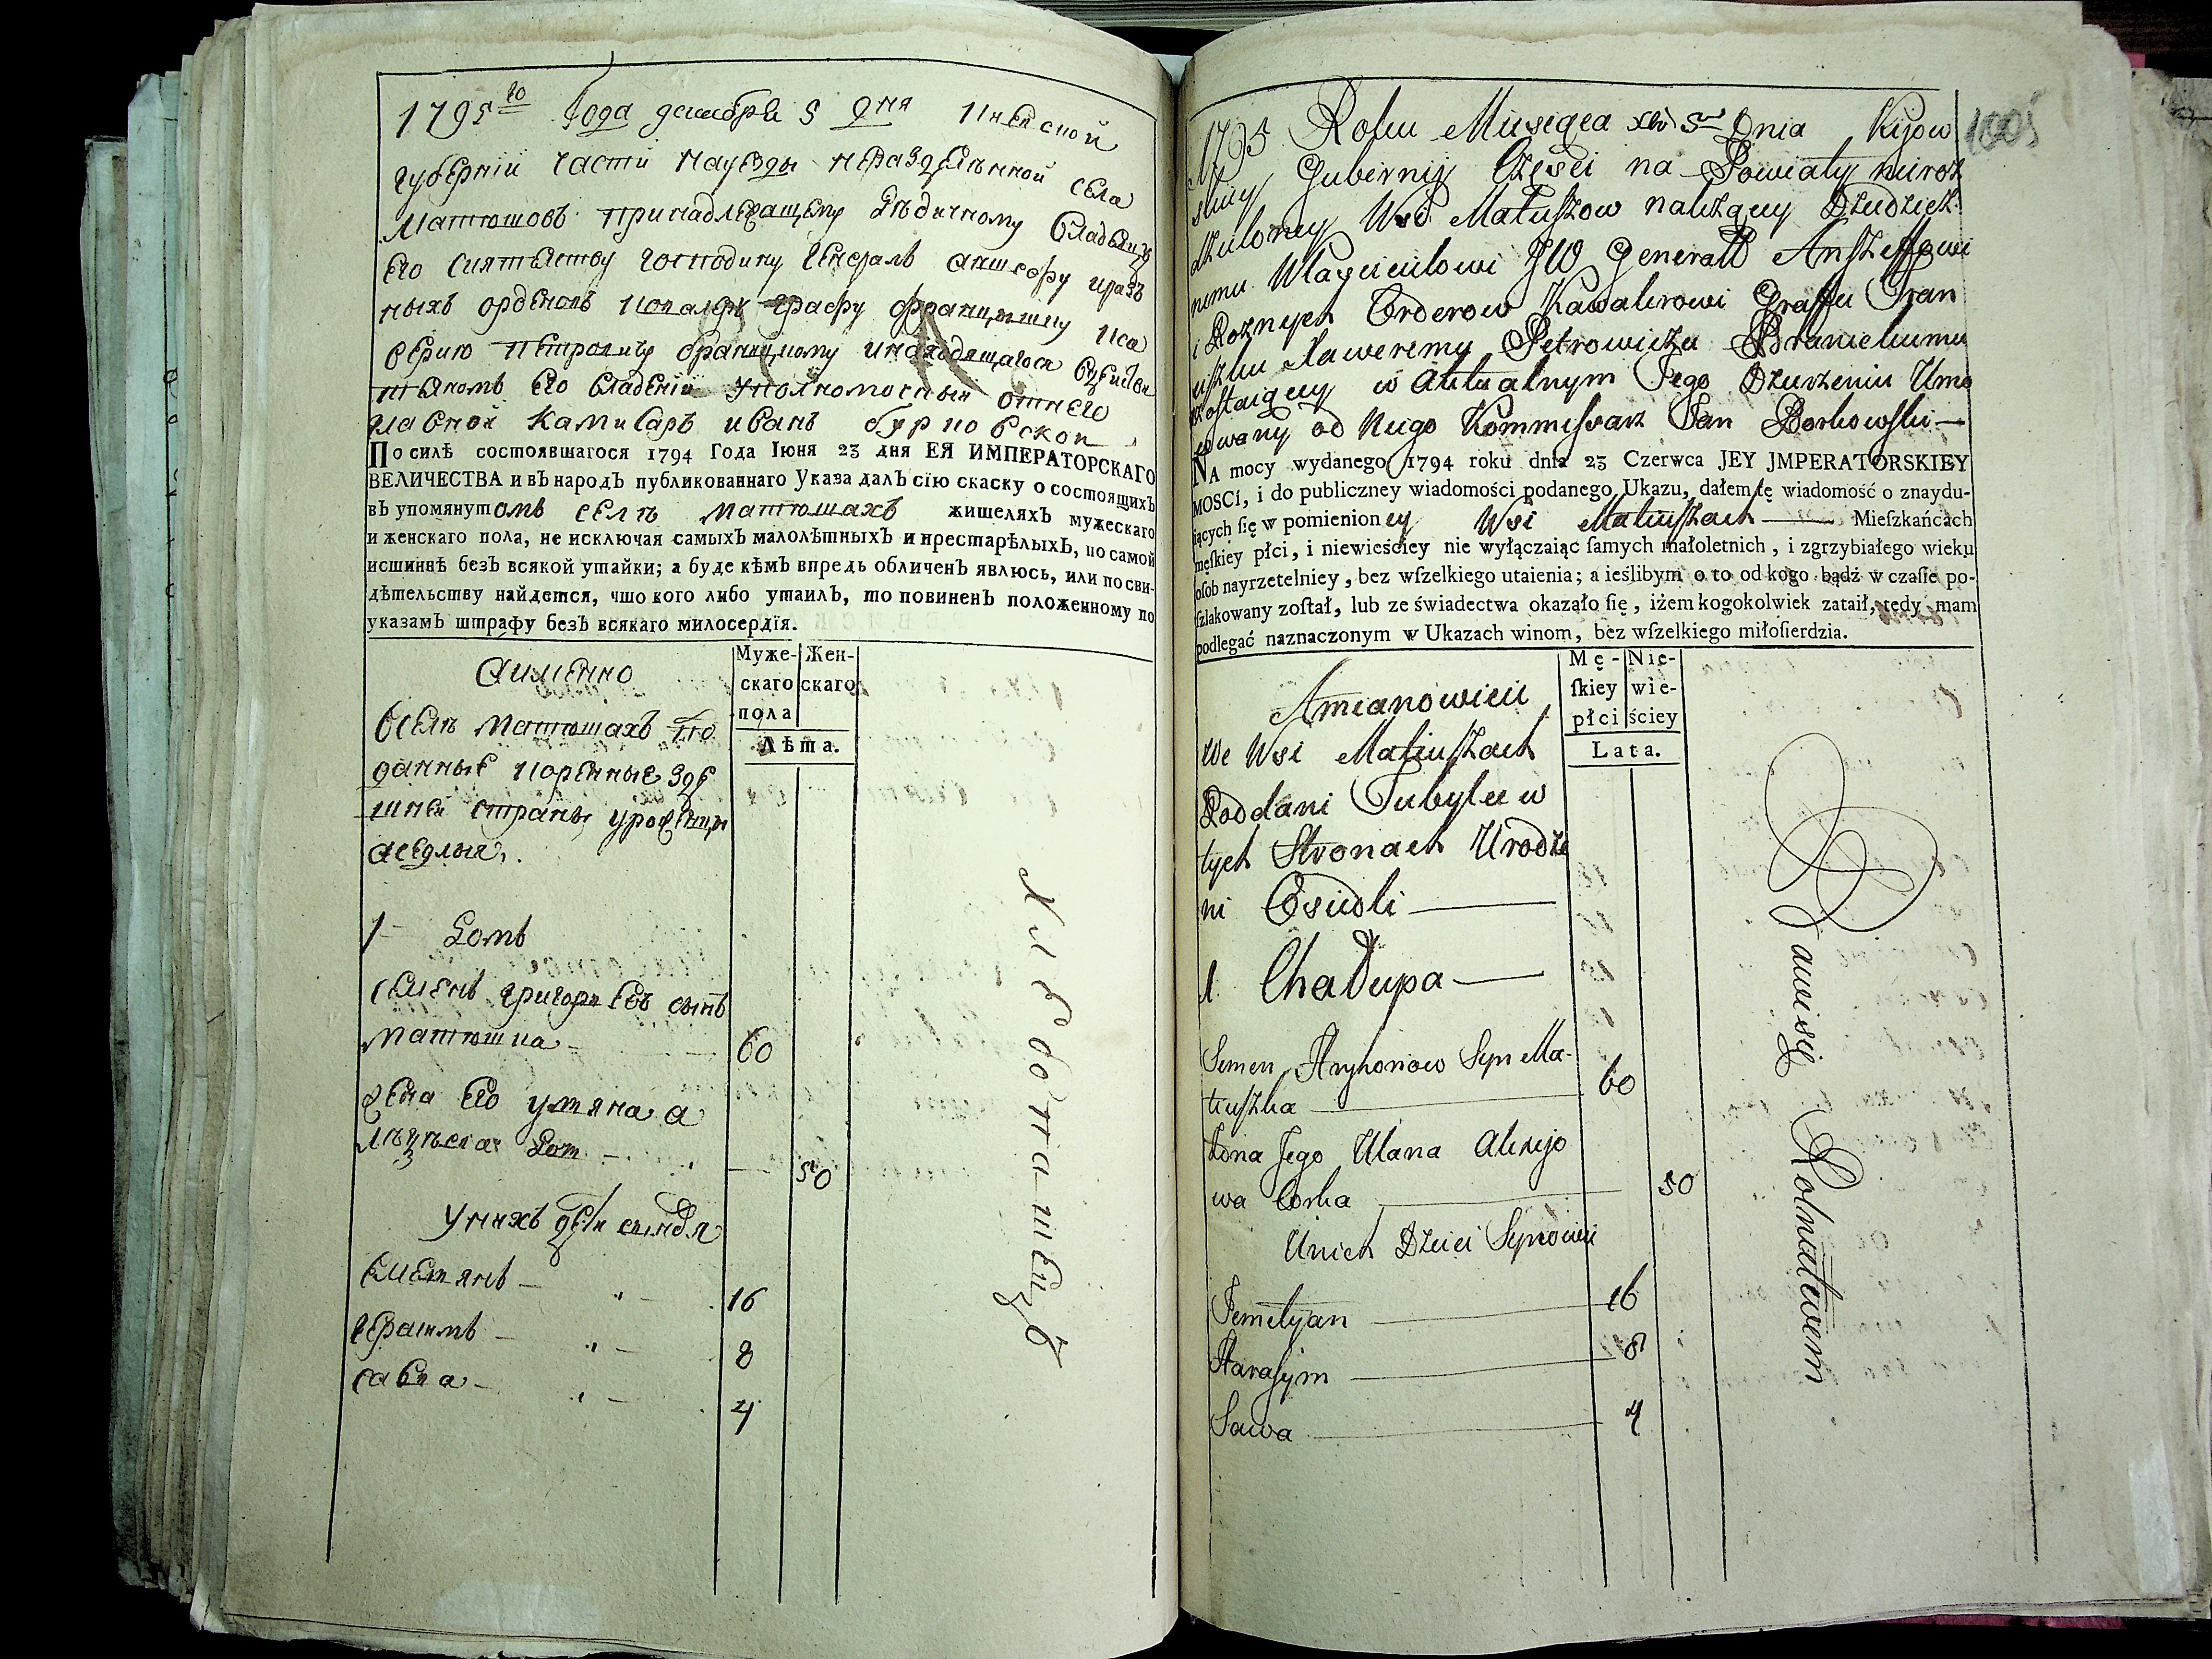 1795го Года декабря 5 дня Киевской
губернии части науезды неразделенной села
Матюшовъ принадлежащему Дѣдичному владелцу
Его сиятелству господину генералъ аншефу и раз
ныхъ орденовъ кавалеру графу францишку кса
верию петровичу браницкому инаходящагося вдеистви
телномъ его владении уполномоченый отнего
главной камисаръ иванъ бурковской
По силѣ состоявшагося 1794 Года Іюня 23 дня ЕЯ ИМПЕРАТОРСКАГО
ВЕЛИЧЕСТВА и въ народъ публикованнаго Указа далъ сію скаску о состоящихъ
въ упомянутомъ селѣ Матюшахъ жителяхъ мужескаго
и женскаго пола, не исключая самыхъ малолѣтныхъ и престарѣлыхъ, по самой
истиннѣ безъ всякой утайки; а буде кѣмъ впредь обличенъ явлюсь, или по сви-
дѣтельству найдется, что кого либо утаилъ, то повиненъ положенному по
указамъ штрафу безъ всякаго милосердія.
Аимянно
Муже- Жен-
скаго скаго
пола
Лѣта.
вселѣ матюшахъ по
данные коренные зде
шнеи страны уроженцы
аседлыя
1 Домъ
семенъ григорьевъ сынъ
матюшка 60
жена его уляна а
лѣксѣева доч 50
унихъ дети сыновя
емелянъ 16
герасимъ 8
савка 4
хлебопашецъ
1795 Roku Miesiąca Xbr 5 Dnia Kijow
skiey Gubernij Częsci na Powiaty nieroz
dzieloney Wsi Matuszow należącey Dziedzicz
nemu Włascicielowi JW Generałł Anszeffowi
i Roznych Orderow Kawalerowi Graffu Fran
ciszku Xaweremu Petrowiczu Branickiemu
zostaiącey w Aktualnym Jego Dzierzeniu Umo
cowany od Niego Kommissarz Jan Borkowski
NA mocy wydanego 1794 roku dnia 23 Czerwca JEY JMPERATORSKIEY
MOSCI, i do publiczney wiadomości podanego Ukazu, dałem tę wiadomość o znaydu-
iących ſię w pomienioney Wsi Matiuszach Mieſzkańcach
męſkiey płci, i niewieściey nie wyłączaiąc ſamych małoletnich, i zgrzybiałego wieku
oſob nayrzetelniey, bez wſzelkiego utaienia; a ieślibym o to od kogo bądź w czaſie po-
ſzlakowany zoſtał, lub ze świadectwa okazało ſię, iżem kogokolwiek zataił, tedy mam
podlegać naznaczonym w Ukazach winom, bez wſzelkiego miłoſierdzia.
Amianowicie
Mę- Nie-
ſkiey wie-
płci ściey
Lata.
We Wsi Matiuszach
Poddani Tubylcy w
tych Stronach Urodze
ni Osiedli
1 Chałupa
Semen Hryhoriow Syn Ma-
tiuszka 60
Żona Jego Ulana Alexijo
wa Corka 50
Unich Dzieci Synowie
Jemelyan 16
Harasym 8
Sawa 4
Bawi się Rolnictwem